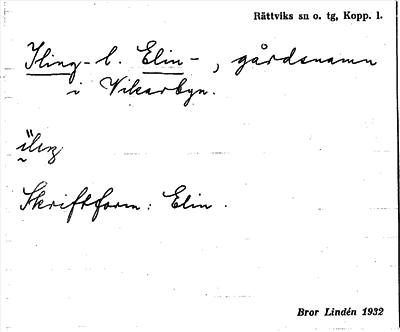 Rättviks sn o. tg, Kopp. l.
Iling- l. Elin-, gårdsnamn
i Vikarbyn.
Skriftform: Elin.
Bror Lindén 1932